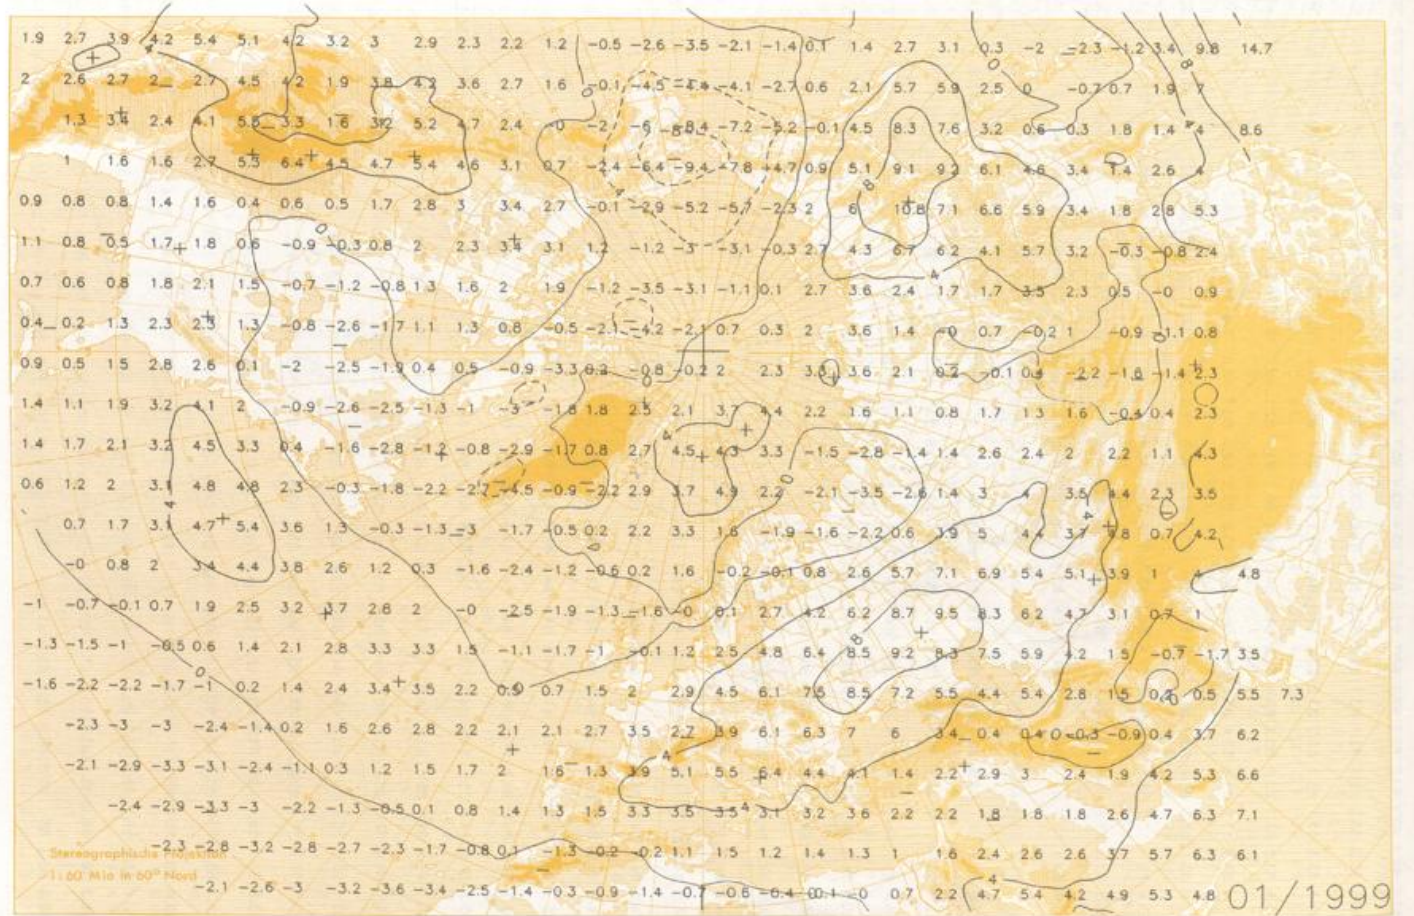 1.9 2.7 3.9 4.2 5.4 5.1 4.2 3.2 3 2.9 2.3 2.2 1.2 -0.5 -2.6 -3.5 -2.1 -1.4 0.1 1.4 2.7 3.1 0.3 -2 -2.3 -1.2 3.4 9.8 14.7
2 2.6 2.7 2 2.7 4.5 4.2 1.9 3.8 4.2 3.6 2.7 1.6 -0.1 -4.5 -4.4 -4.1 -2.7 0.6 2.1 5.7 5.9 2.5 0 -0.7 0.7 1.9 7
1.3 3.4 2.4 4.1 5.8 3.3 1.6 3.2 5.2 4.7 2.4 -0 -2 -6 -8.4 -7.2 -5.2 -0.1 4.5 8.3 7.6 3.2 0.6 0.3 1.8 1.4 4 8.6
1 1.6 1.6 2.7 5.3 6.4 4.5 4.7 5.4 4.6 3.1 0.7 -2.4 -6.4 -9.4 -7.8 -4.7 0.9 5.1 9.1 9.2 6.1 4.6 3.4 1.4 2.6 4
0.9 0.8 0.8 1.4 1.6 0.4 0.6 0.5 1.7 2.8 3 3.4 2.7 -0.1 -2.9 -5.2 -5.7 -2.3 2 6 10.8 7.1 6.6 5.9 3.4 1.8 2.8 5.3
1.1 0.8 0.5 1.7 1.8 0.6 -0.9 -0.3 0.8 2 2.3 3.4 3.1 1.2 -1.2 -3 -3.1 -0.3 2.7 4.3 6.7 6.2 4.1 5.7 3.2 -0.3 -0.8 2.4
0.7 0.6 0.8 1.8 2.1 1.5 -0.7 -1.2 -0.8 1.3 1.6 2 1.9 -1.2 -3.5 -3.1 -1.1 0.1 2.7 3.6 2.4 1.7 1.7 3.5 2.3 0.5 -0 0.9
0.4 0.2 1.3 2.3 2.3 1.3 -0.8 -2.6 -1.7 1.1 1.3 0.8 -0.5 -2.1 -4.2 -2.1 0.7 0.3 2 3.6 1.4 -0 0.7 -0.2 1 -0.9 -1.1 0.8
0.9 0.5 1.5 2.8 2.6 0.1 -2 -2.5 -1.9 0.4 0.5 -0.9 -3.3 0.2 -0.8 -0.2 2 2.3 3.3 3.6 2.1 0.2 -0.1 0.4 -2.2 -1.6 -1.4 2.3
1.4 1.1 1.9 3.2 4.1 2 -0.9 -2.6 -2.5 -1.3 -1 -3 -1.8 1.8 2.5 2.1 3.7 4.4 2.2 1.6 1.1 0.8 1.7 1.3 1.6 -0.4 0.4 2.3
1.4 1.7 2.1 3.2 4.5 3.3 0.4 -1.6 -2.8 -1.2 -0.8 -2.9 -1.7 0.8 2.7 4.5 4.3 3.3 -1.5 -2.8 -1.4 1.4 2.6 2.4 2 2.2 1.1 4.3
0.6 1.2 2 3.1 4.8 4.8 2.3 -0.3 -1.8 -2.2 -2.7 -4.5 -0.9 -2.2 2.9 3.7 4.9 2.2 -2.1 -3.5 -2.6 1.4 3 4 3.5 4.4 2.3 3.5
0.7 1.7 3.1 4.7 5.4 3.6 1.3 -0.3 -1.3 -3 -1.7 -0.5 0.2 2.2 3.3 1.6 -1.9 -1.6 -2.2 0.6 3.9 5 4.4 3.7 4.8 0.7 4.2
-0 0.8 2 3.4 4.4 3.8 2.6 1.2 0.3 -1.6 -2.4 -1.2 -0.6 0.2 1.6 -0.2 -0.1 0.8 2.6 5.7 7.1 6.9 5.4 5.1 3.9 1 4 4.8
-1 -0.7 -0.1 0.7 1.9 2.5 3.2 3.7 2.8 2 -0 -2.5 -1.9 -1.3 -1.6 -0 0.1 2.7 4.2 6.2 8.7 9.5 8.3 6.2 4.7 3.1 0.7 1
-1.3 -1.5 -1 -0.5 0.6 1.4 2.1 2.8 3.3 3.3 1.5 -1.1 -1.7 -1 -0.1 1.2 2.5 4.8 6.4 8.5 9.2 8.3 7.5 5.9 4.2 1.5 -0.7 -1.7 3.5
-1.6 -2.2 -2.2 -1.7 -1 0.2 1.4 2.4 3.4 3.5 2.2 0.5 0.7 1.5 2 2.9 4.5 6.1 7.5 8.5 7.2 5.5 4.4 5.4 2.8 1.5 0.2 0.5 5.5 7.3
-2.3 -3 -3 -2.4 -1.4 0.2 1.6 2.6 2.8 2.2 2.1 2.1 2.7 3.5 2.7 3.9 6.1 6.3 7 6 3.4 0.4 0.4 -0.3 -0.9 0.4 3.7 6.2
-2.1 -2.9 -3.3 -3.1 -2.4 -1.1 0.3 1.2 1.5 1.7 2 1.6 1.3 3.9 5.1 5.5 6.4 4.4 4.1 1.4 2.2 2.9 3 2.4 1.9 4.2 5.3 6.6
-2.4 -2.9 -3.3 -3 -2.2 -1.3 -0.5 0.1 0.8 1.4 1.3 1.5 3.3 3.5 3.5 3.1 3.2 3.6 2.2 2.2 1.8 1.8 1.8 2.6 4.7 6.3 7.1
-2.3 -2.8 -3.2 -2.8 -2.7 -2.3 -1.7 -0.8 0.1 -1.3 -0.2 -0.2 1.1 1.5 1.2 1.4 1.3 1 1.6 2.4 2.6 2.6 3.7 5.7 6.3 6.1
Stereographische Projektion
1:60 Mio in 60° Nord
-2.1 -2.6 -3 -3.2 -3.6 -3.4 -2.5 -1.4 -0.3 -0.9 -1.4 -0.7 -0.6 -0.4 -0.1 -0 0.7 2.2 4.7 5.4 4.2 4.9 5.3 4.8
01/1999